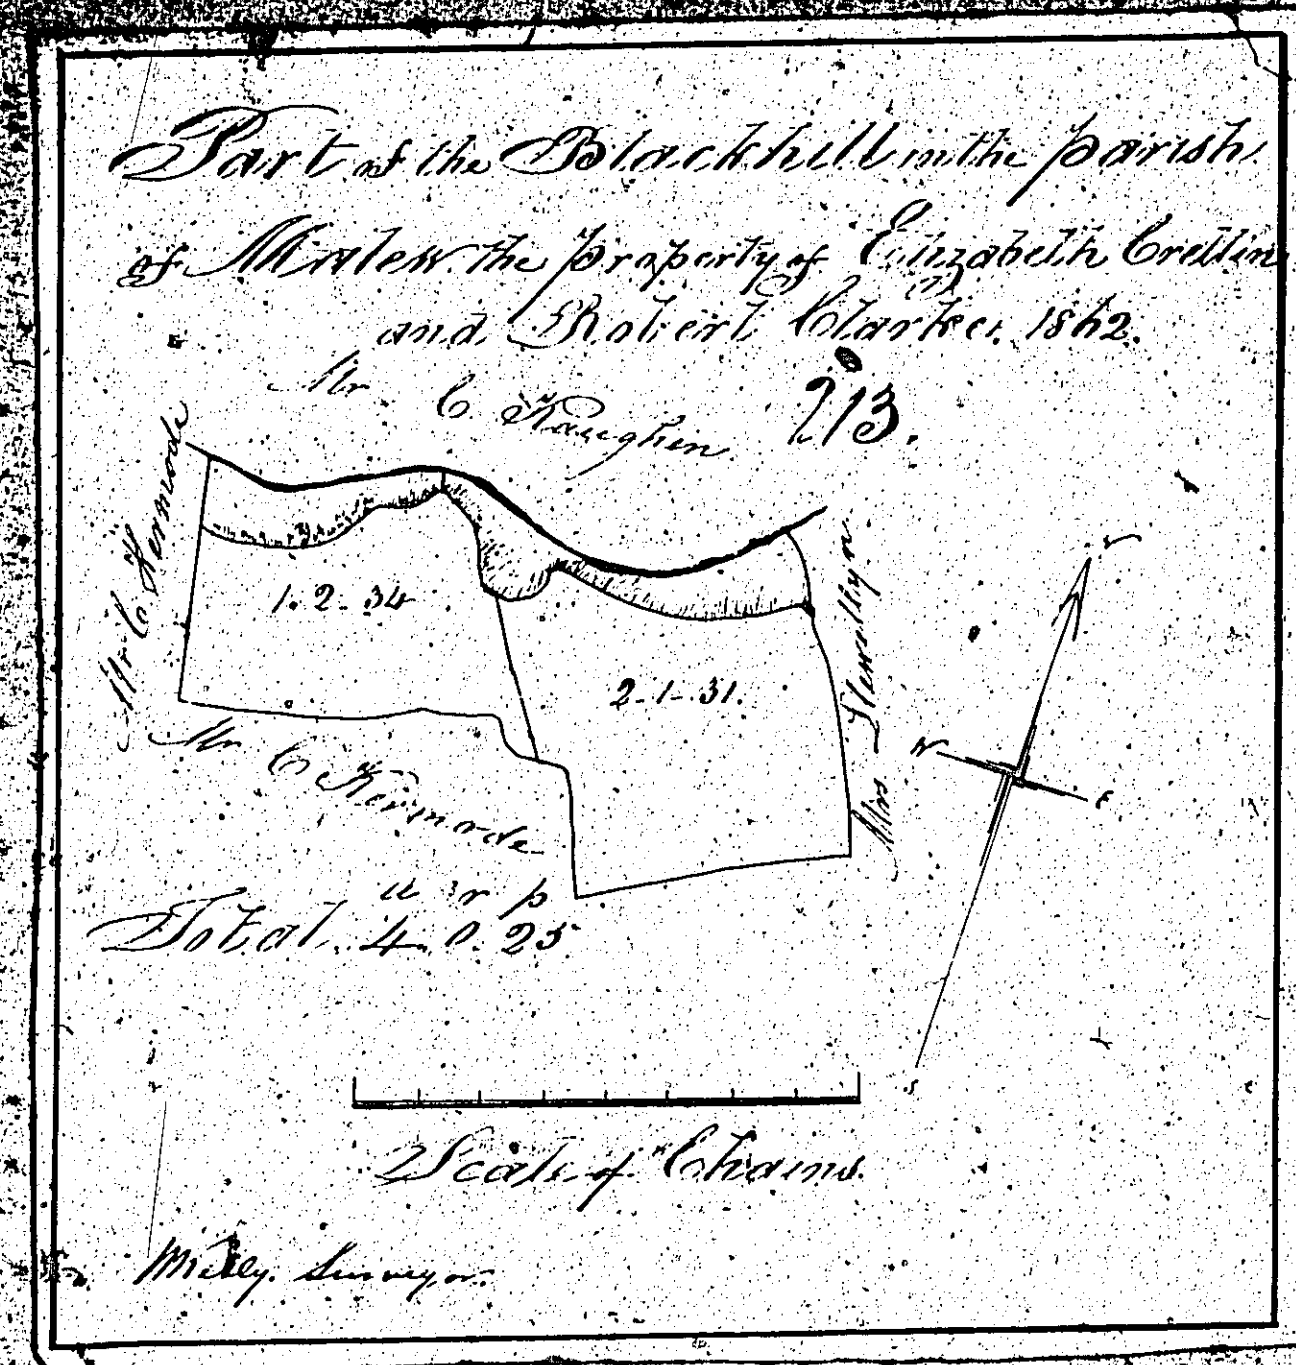 Part of the Blackhill in the parish
of Malew the property of Elizabeth Crellin
and Robert Clarke 1862.
Mr C Kaughin.
213.
Mr C Kermode
1. 2 - 34
2 - 1 - 31.
Mrs Llewellyn
N
W
E
S
Mr C Kermode
a r p
Total 4. 0. 25
Scale of Chains.
Surveyor.